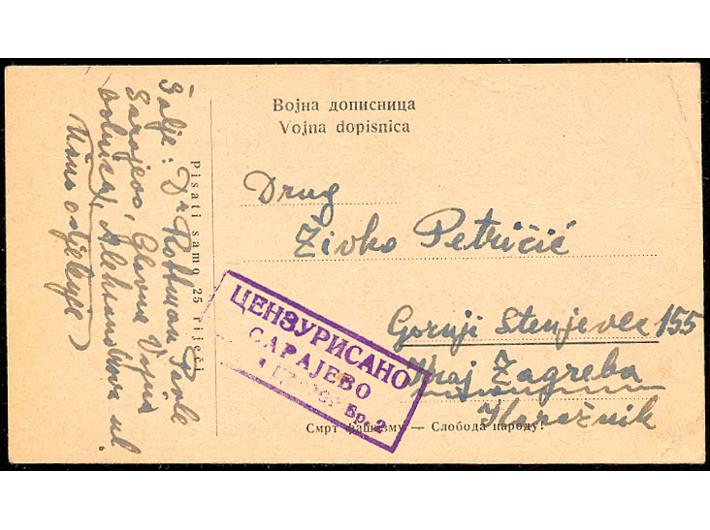 Војна дописница
Vojna dopisnica
Drug
Živko Petričić
Gornji Stenjevec 155
Kraj Zagreba
Šalje: Dr Rottman Pavle
Sarajevo, Glavna Vojna
bolnica, Aleksandrova ul.
Pisati samo 25 riječi
ЦЕНЗУРИСАНО
САРАЈЕВО
Бр. 2
Смрт фашизму — Слобода народу!